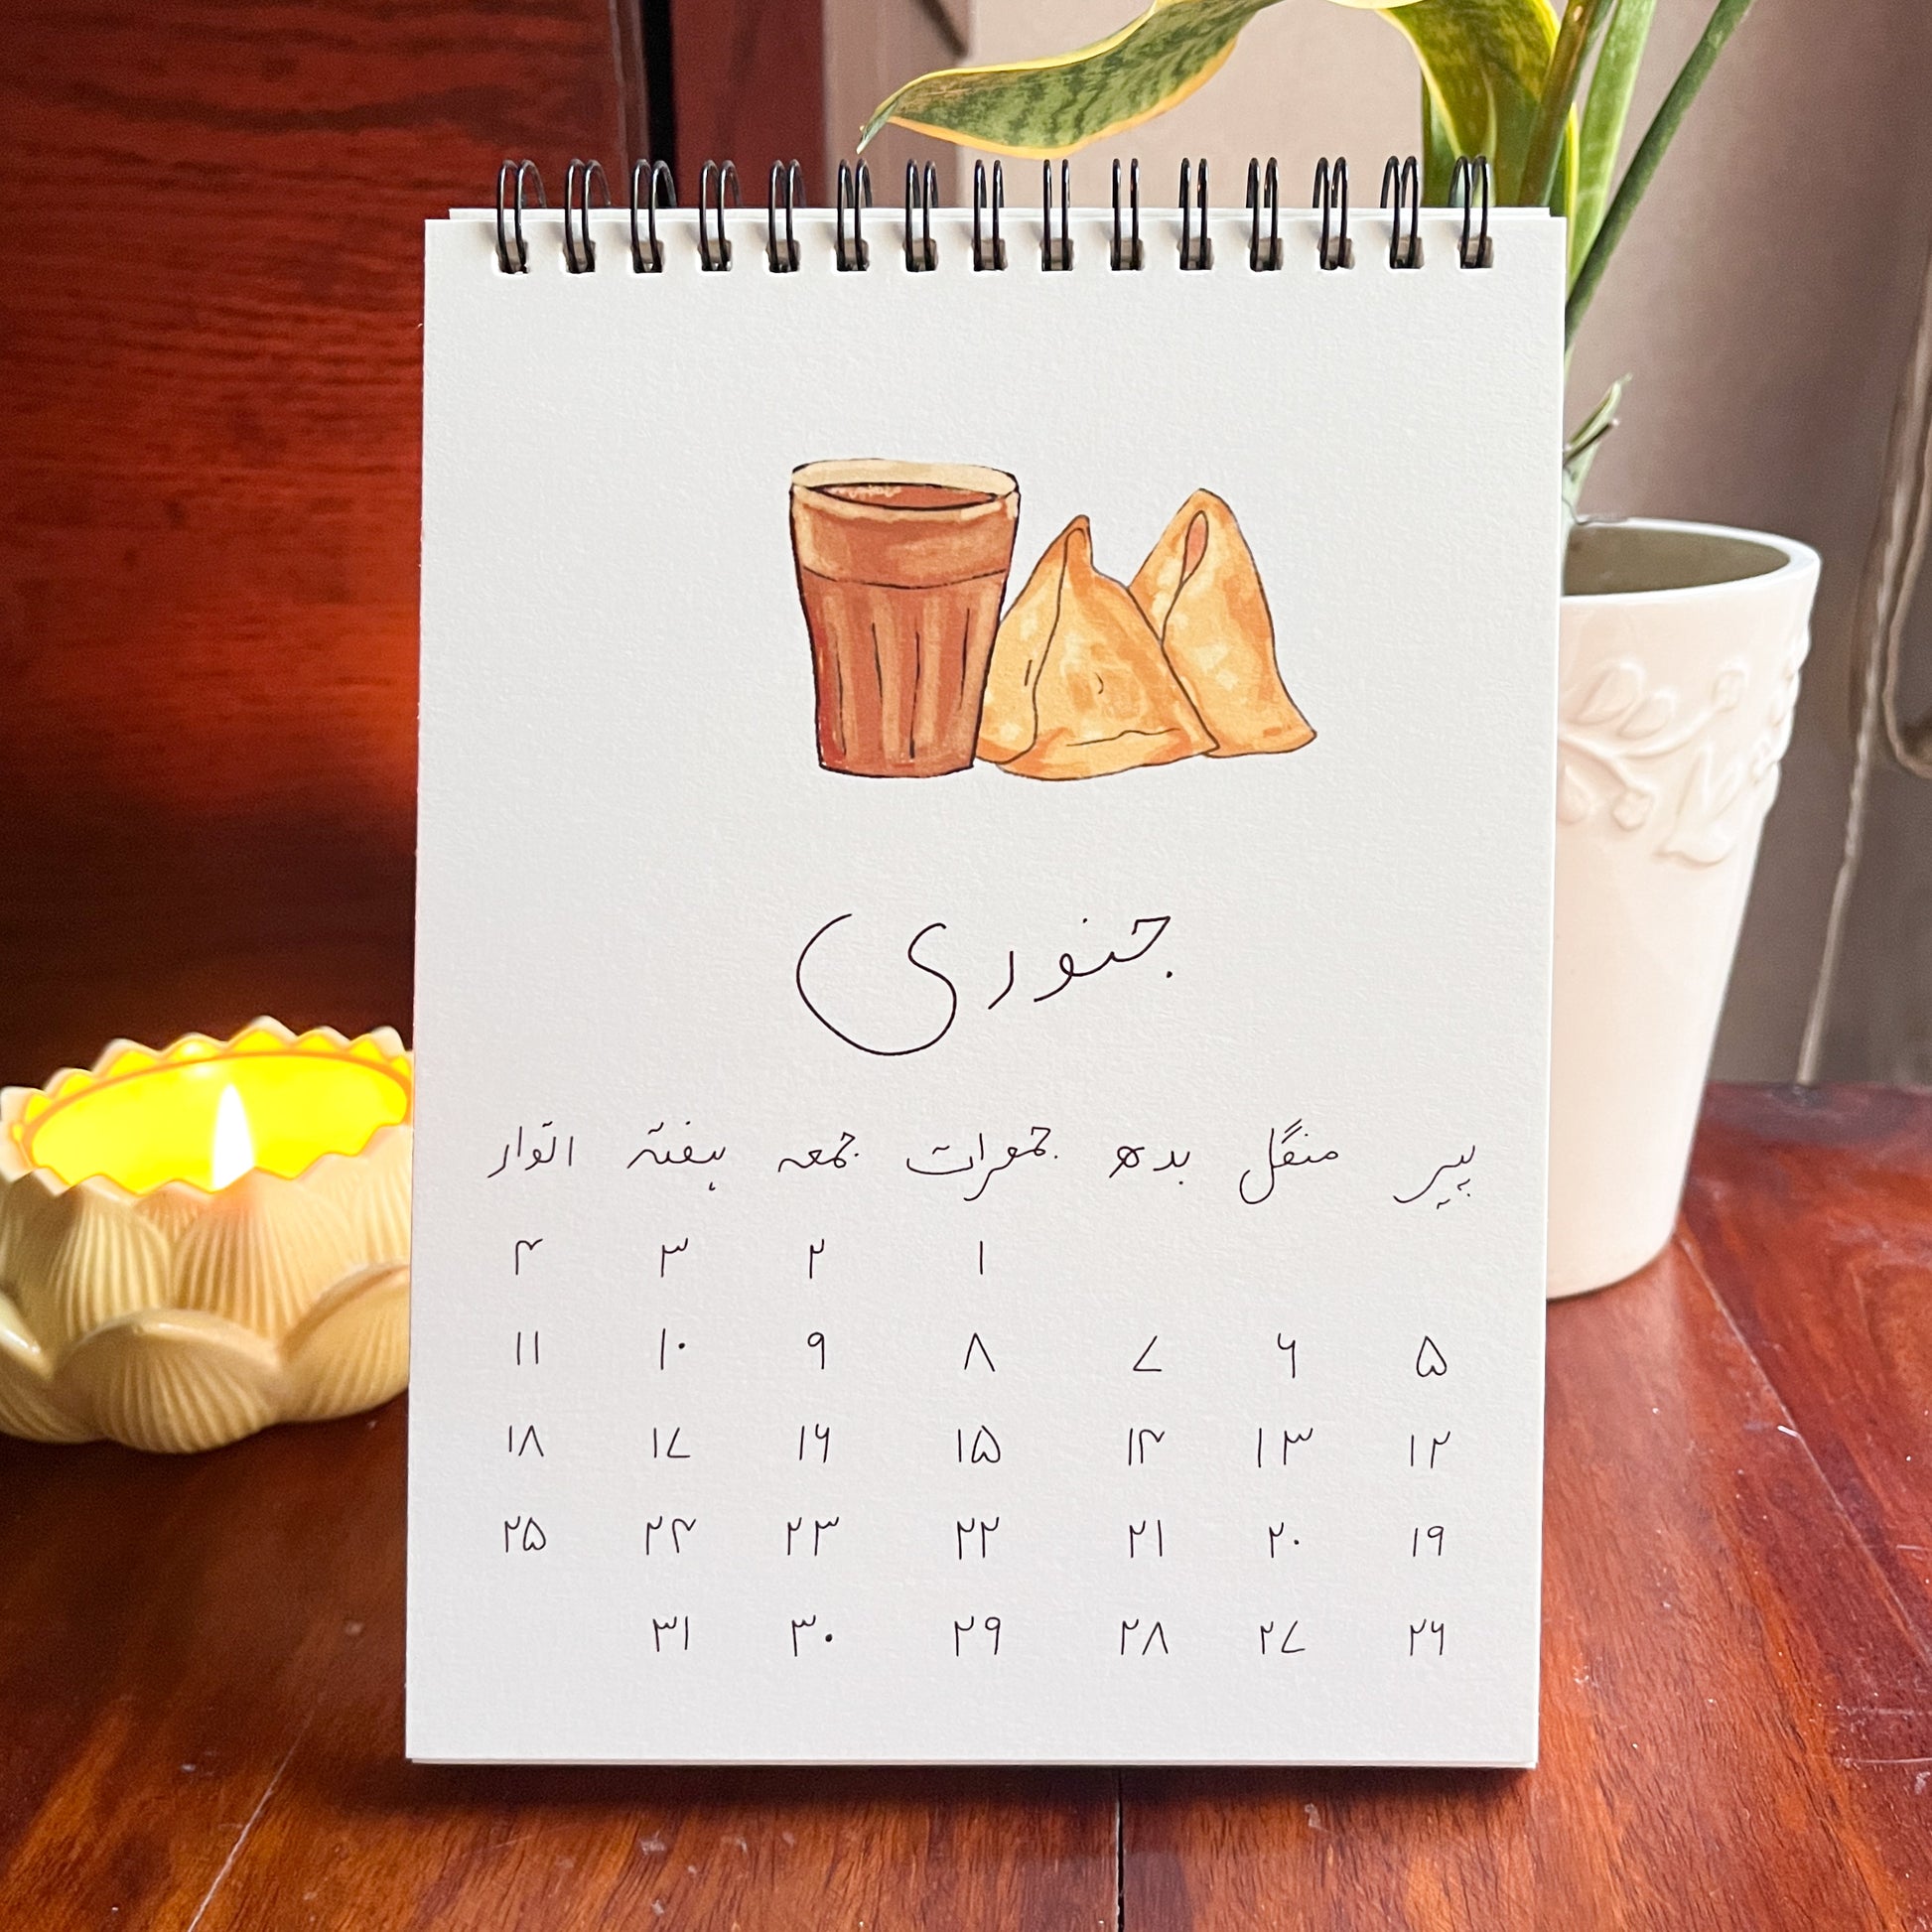 جنوری
پیر منگل بدھ جمعرات جمعہ ہفتہ اتوار
۱ ۲ ۳ ۴
۵ ۶ ۷ ۸ ۹ ۱۰ ۱۱
۱۲ ۱۳ ۱۴ ۱۵ ۱۶ ۱۷ ۱۸
۱۹ ۲۰ ۲۱ ۲۲ ۲۳ ۲۴ ۲۵
۲۶ ۲۷ ۲۸ ۲۹ ۳۰ ۳۱